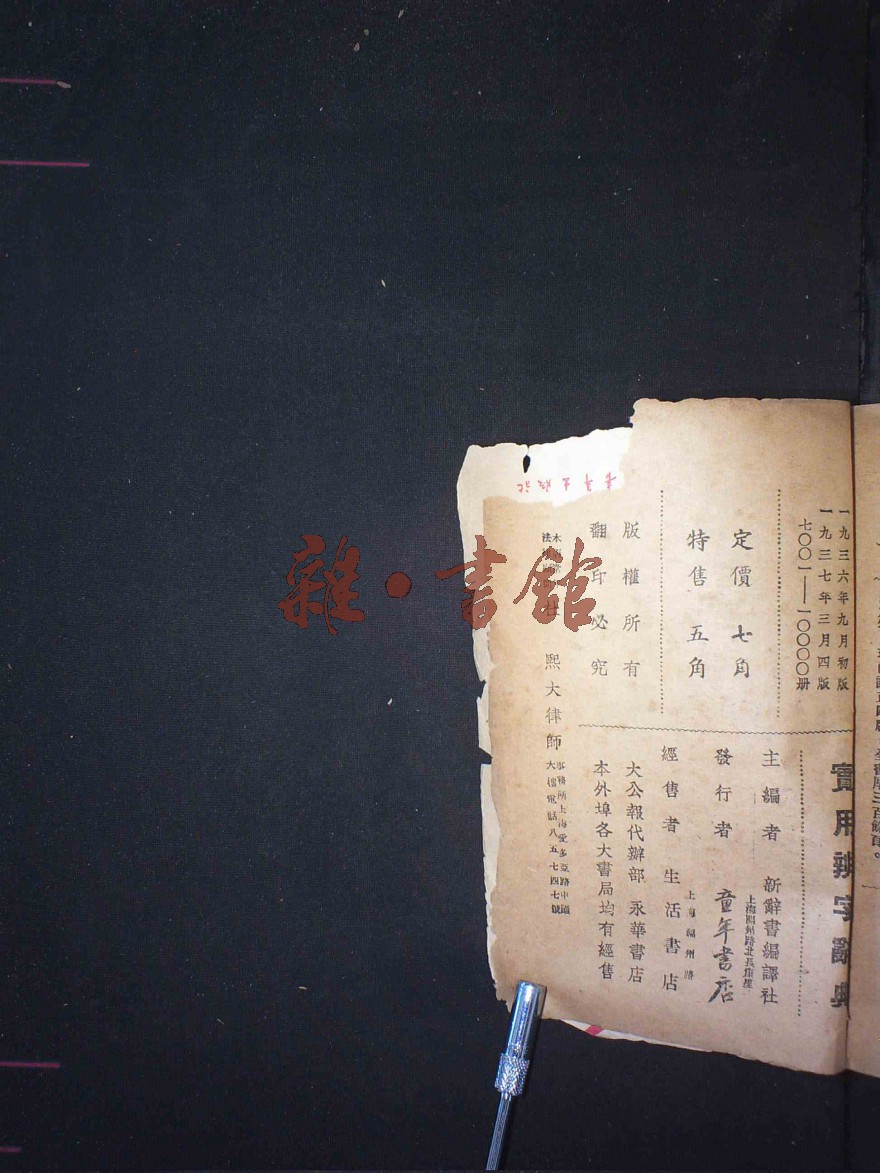 實用辨字辭典
一九三六年九月初版
一九三七年三月四版
七〇〇一——一〇〇〇〇册
定價 七角
特售 五角
版權所有
翻印必究
主編者 新辭書編譯社
發行者 童年書店
經售者 生活書店
上海福州路
大公報代辦部 永華書店
本外埠各大書局均有經售
熙大律師
事務所上海愛多亞路中國
大樓電話八五七四七號
雜·書館